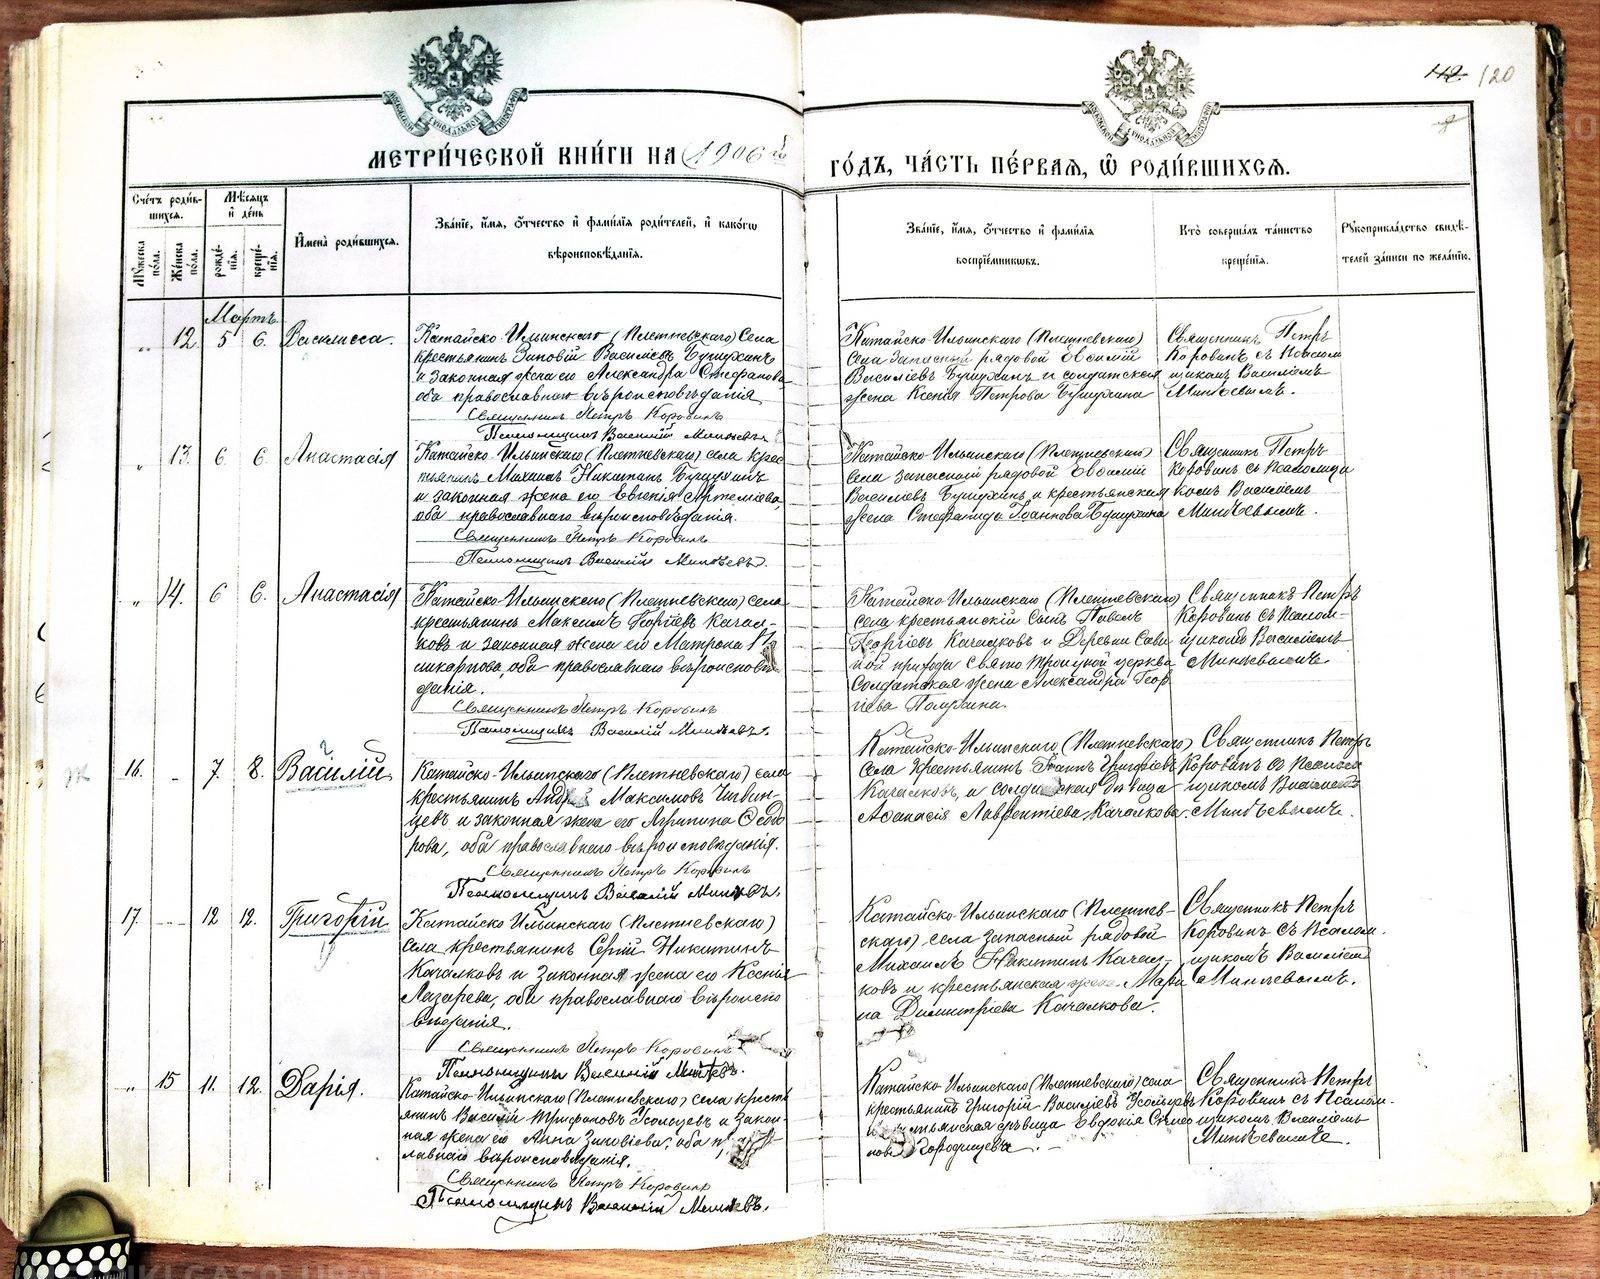 112 120
МЕТРИ́ЧЕСКОЙ КНИ́ГИ НА 1906й
ГО́ДЪ, ЧА́СТЬ ПЕ́РВАѦ, Ѡ҆ РОДИ́ВШИХСѦ.
Сче́тъ роди́в-
шихсѧ.
Мꙋ́жеска по́ла.
Же́нска по́ла.
Мѣ́сѧцъ
и҆ де́нь
рожде́нїѧ.
креще́нїѧ.
И҆мена̀ роди́вшихсѧ.
Зва́нїе, и҆́мѧ, ѻ҆́тчество и҆ фами́лїѧ роди́телей, и҆ како́гѡ
вѣроисповѣ́данїѧ.
Зва́нїе, и҆́мѧ, ѻ҆́тчество и҆ фами́лїѧ
воспрїе́мникѡвъ.
Кто̀ соверша́лъ та́инство
креще́нїѧ.
Рꙋкоприкла́дство свидѣ́-
телей за́писи по жела́нїю.
Мартъ.
„ 12 5 6. Васил исса.
Катайско-Ильинскаго (Плетневскаго) села
крестьянинъ Зиновій Васильевъ Бушухинъ
и законная жена его Александра Стефанова
оба православнаго вѣроисповѣданія
Священникъ Петръ Коровинъ
Псаломщикъ Василій Минѣевъ.
Катайско-Ильинскаго (Плетневскаго)
села запасный рядовой Евфимій
Васильевъ Бушухинъ и солдатская
жена Ксенія Петрова Бушухина
Священникъ Петръ
Коровинъ съ Псалом
щикомъ Василіемъ
Минѣевымъ.
„ 13. 6. 6. Анастасія
Катайско-Ильинскаго (Плетневскаго) села крес
тьянинъ Михаилъ Никитинъ Бушухинъ
и законная жена его Евгенія Артеміева,
оба православнаго вѣроисповѣданія.
Священникъ Петръ Коровинъ
Псаломщикъ Василій Минѣевъ.
Катайско-Ильинскаго (Плетневскаго)
села запасный рядовой Евфимій
Васильевъ Бушухинъ и крестьянская
жена Стефанида Іоаннова Бушухина
Священникъ Петръ
Коровинъ съ Псаломщи
комъ Василіемъ
Минѣевымъ.
„ 14. 6 6. Анастасія
Катайско-Ильинскаго (Плетневскаго) села
крестьянинъ Максимъ Георгіевъ Качал-
ковъ и законная жена его Матрона
оба православнаго вѣроисповѣ
данія.
Священникъ Петръ Коровинъ
Псаломщикъ Василій Минѣевъ.
Катайско-Ильинскаго (Плетневскаго)
села крестьянскій сынъ Павелъ
Георгіевъ Качалковъ и Деревни Сави
ной прихода Свято Троицкой церкви
Солдатская жена Александра Геор
гіева
Священникъ Петръ
Коровинъ съ Псалом-
щикомъ Василіемъ
Минѣевымъ.
16. - 7. 8. Василій
Катайско-Ильинскаго (Плетневскаго) села
крестьянинъ Андрей Максимовъ Чигвин-
цевъ и законная жена его Агрипина Ѳеодо
рова, оба православнаго вѣроисповѣданія.
Священникъ Петръ Коровинъ
Псаломщикъ Василій Минѣевъ.
Катайско-Ильинскаго (Плетневскаго)
села Крестьянинъ Іоаннъ Григоріевъ
Качалковъ, и солдатская дѣвица
Аѳанасія Лаврентіева Качалкова.
Священникъ Петръ
Коровинъ съ Псалом
щикомъ Василіемъ
Минѣевымъ.
17. -- 12 12. Григорій
Катайско-Ильинскаго (Плетневскаго)
села, крестьянинъ Сергій Никитинъ
Качалковъ и Законная жена его Ксенія
Лазарева, оба православнаго вѣроиспо
вѣданія.
Священникъ Петръ Коровинъ
Псаломщикъ Василій Минѣевъ.
Катайско-Ильинскаго (Плетнев-
скаго) села запасный рядовой
Михаилъ Никитинъ Качал-
ковъ и крестьянская жена Мари
на Димитріева Качалкова.
Священникъ Петръ
Коровинъ съ Псалом.
щикомъ Василіем
Минѣевымъ.
„ 15 11. 12. Дарія.
Катайско-Ильинскаго (Плетневскаго) села кресть
янинъ Василій Трифоновъ Усольцевъ и Закон-
ная жена его Анна Зиновіева, оба
славнаго вѣроисповѣданія.
Священникъ Петръ Коровинъ
Псаломщикъ Василій Минѣевъ.
Катайско-Ильинскаго (Плетневскаго) села
крестьянинъ Григорій Васильевъ Усольцевъ
дѣвица Евдокія
Городищева.
Священникъ Петръ
Коровинъ съ Псалом.
щикомъ Василіемъ
Минѣевымъ.